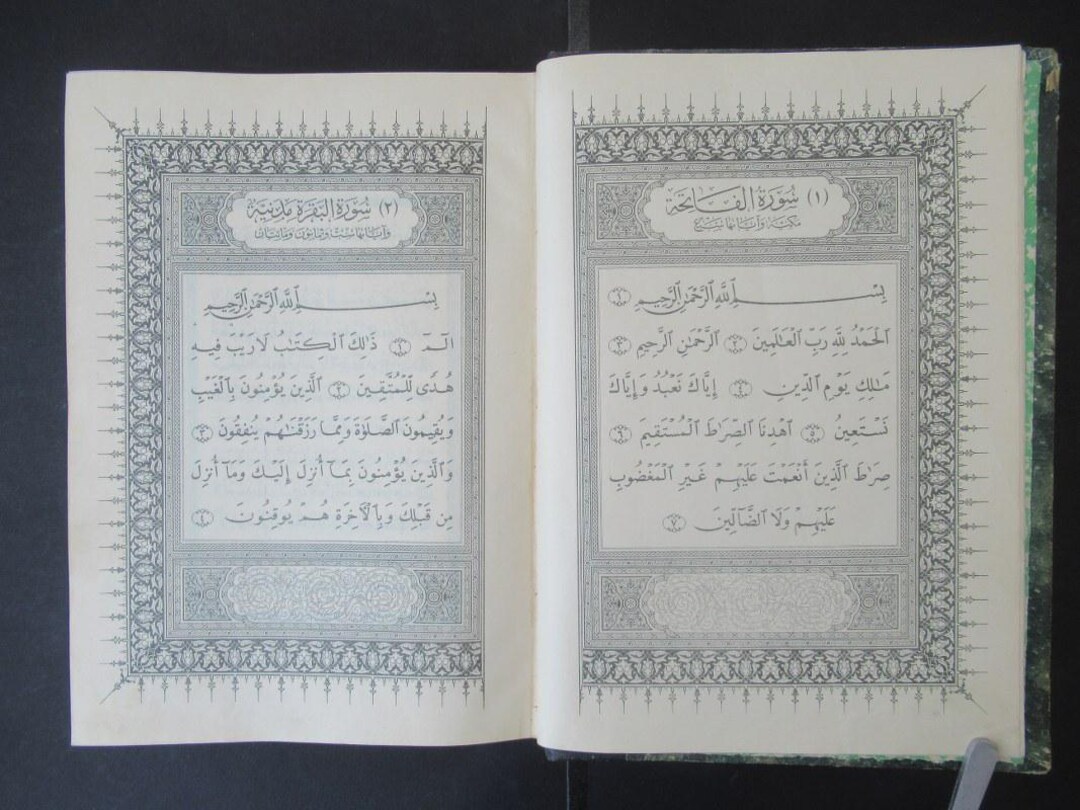 (١) سُورَة الفَاتِحَة
مكيّة وآياتها سَبْع
بِسْمِ ٱللَّهِ ٱلرَّحْمَٰنِ ٱلرَّحِيمِ ١
ٱلْحَمْدُ لِلَّهِ رَبِّ ٱلْعَٰلَمِينَ ٢ ٱلرَّحْمَٰنِ ٱلرَّحِيمِ ٣
مَٰلِكِ يَوْمِ ٱلدِّينِ ٤ إِيَّاكَ نَعْبُدُ وَإِيَّاكَ
نَسْتَعِينُ ٥ ٱهْدِنَا ٱلصِّرَٰطَ ٱلْمُسْتَقِيمَ ٦
صِرَٰطَ ٱلَّذِينَ أَنْعَمْتَ عَلَيْهِمْ غَيْرِ ٱلْمَغْضُوبِ
عَلَيْهِمْ وَلَا ٱلضَّآلِّينَ ٧
(٢) سُورَة البَقَرَة مَدَنِيّة
وآياتها سِتّ وثمانون ومائتان
بِسْمِ ٱللَّهِ ٱلرَّحْمَٰنِ ٱلرَّحِيمِ
الٓمٓ ١ ذَٰلِكَ ٱلْكِتَٰبُ لَا رَيْبَ فِيهِ
هُدًى لِّلْمُتَّقِينَ ٢ ٱلَّذِينَ يُؤْمِنُونَ بِٱلْغَيْبِ
وَيُقِيمُونَ ٱلصَّلَوٰةَ وَمِمَّا رَزَقْنَٰهُمْ يُنفِقُونَ ٣
وَٱلَّذِينَ يُؤْمِنُونَ بِمَآ أُنزِلَ إِلَيْكَ وَمَآ أُنزِلَ
مِن قَبْلِكَ وَبِٱلْءَاخِرَةِ هُمْ يُوقِنُونَ ٤